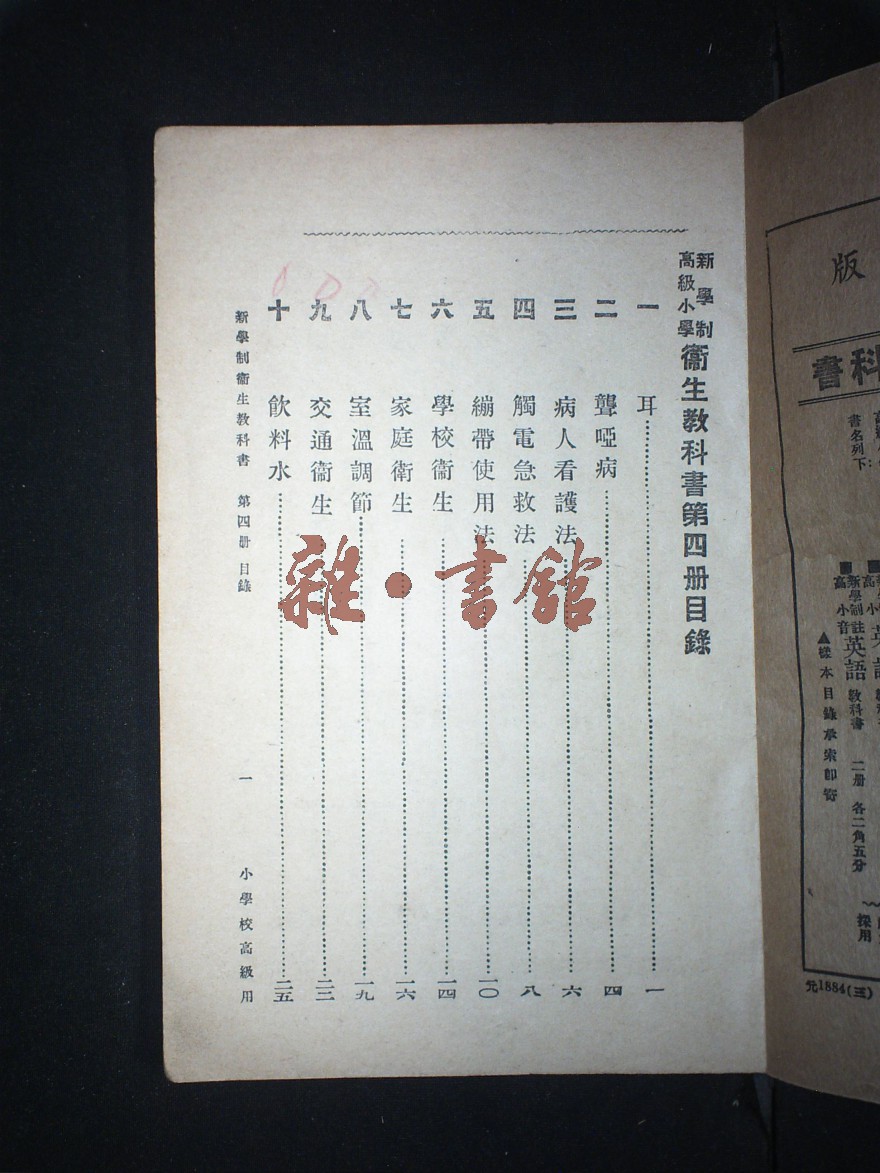 新學制
高級小學
衞生教科書第四册目錄
一 耳 一
二 聾啞病 四
三 病人看護法 六
四 觸電急救法 八
五 繃帶使用法 一〇
六 學校衞生 一四
七 家庭衛生 一六
八 室溫調節 一九
九 交通衞生 二三
十 飲料水 二五
新學制衞生教科書 第四册 目錄 一 小學校高級用
雜·書館
版
科書
書名列下
採用
新學制
高小
英語
教科書
新學制
高小
註音
英語
教科書 二册 各二角五分
▲樣本目錄承索即寄
元1884(三)